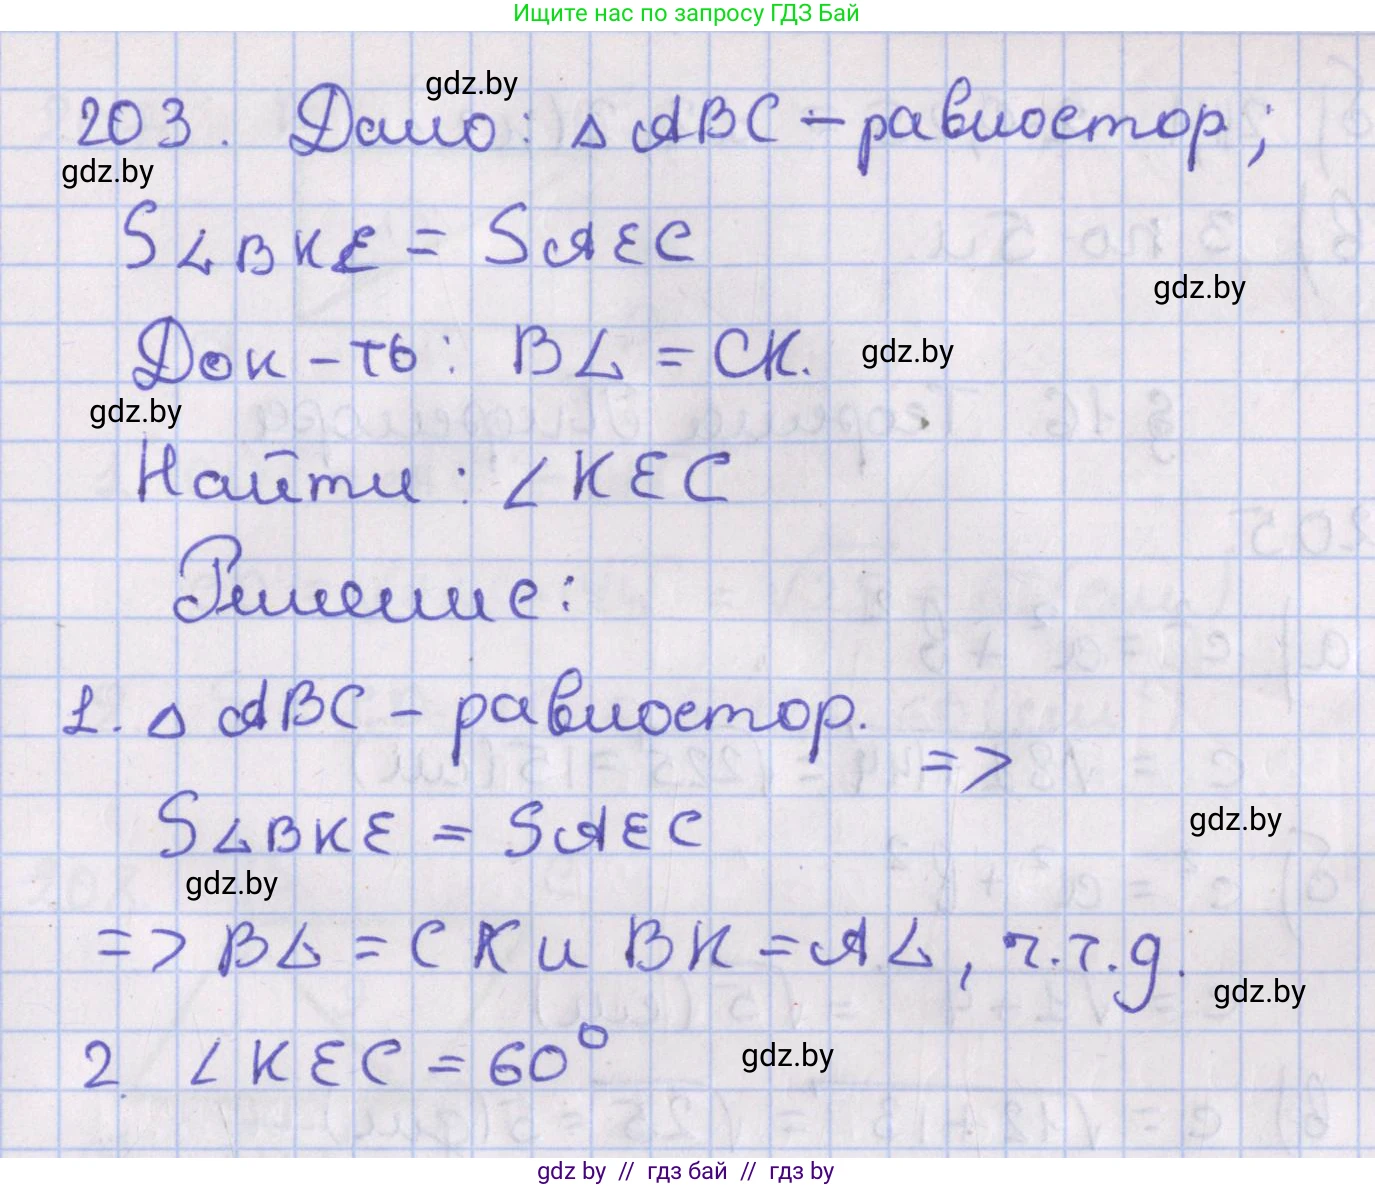 Ищите нас по запросу ГДЗ Бай
gdz.by
203. Дано: △ ABC – равностор;
gdz.by
S∠BKE = SAEC
gdz.by
Док-ть: B∠ = CK.
gdz.by
gdz.by
Найти: ∠KEC
Решение:
1. △ ABC – равностор.
=>
S∠BKE = SAEC
gdz.by
gdz.by
=> B∠ = CK и BK = A∠, ч.т.д.
gdz.by
2. ∠KEC = 60°
gdz.by
gdz by // гдз бай // гдз by